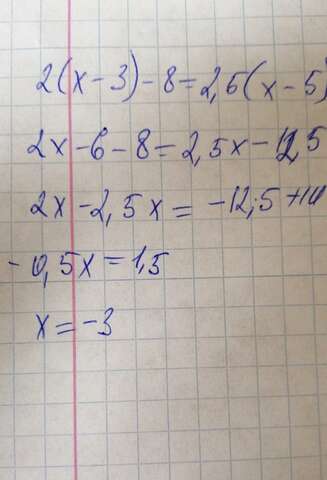 2(x-3)-8=2,5(x-5)
2x-6-8=2,5x-12,5
2x-2,5x=-12,5+14
-0,5x=1,5
x=-3